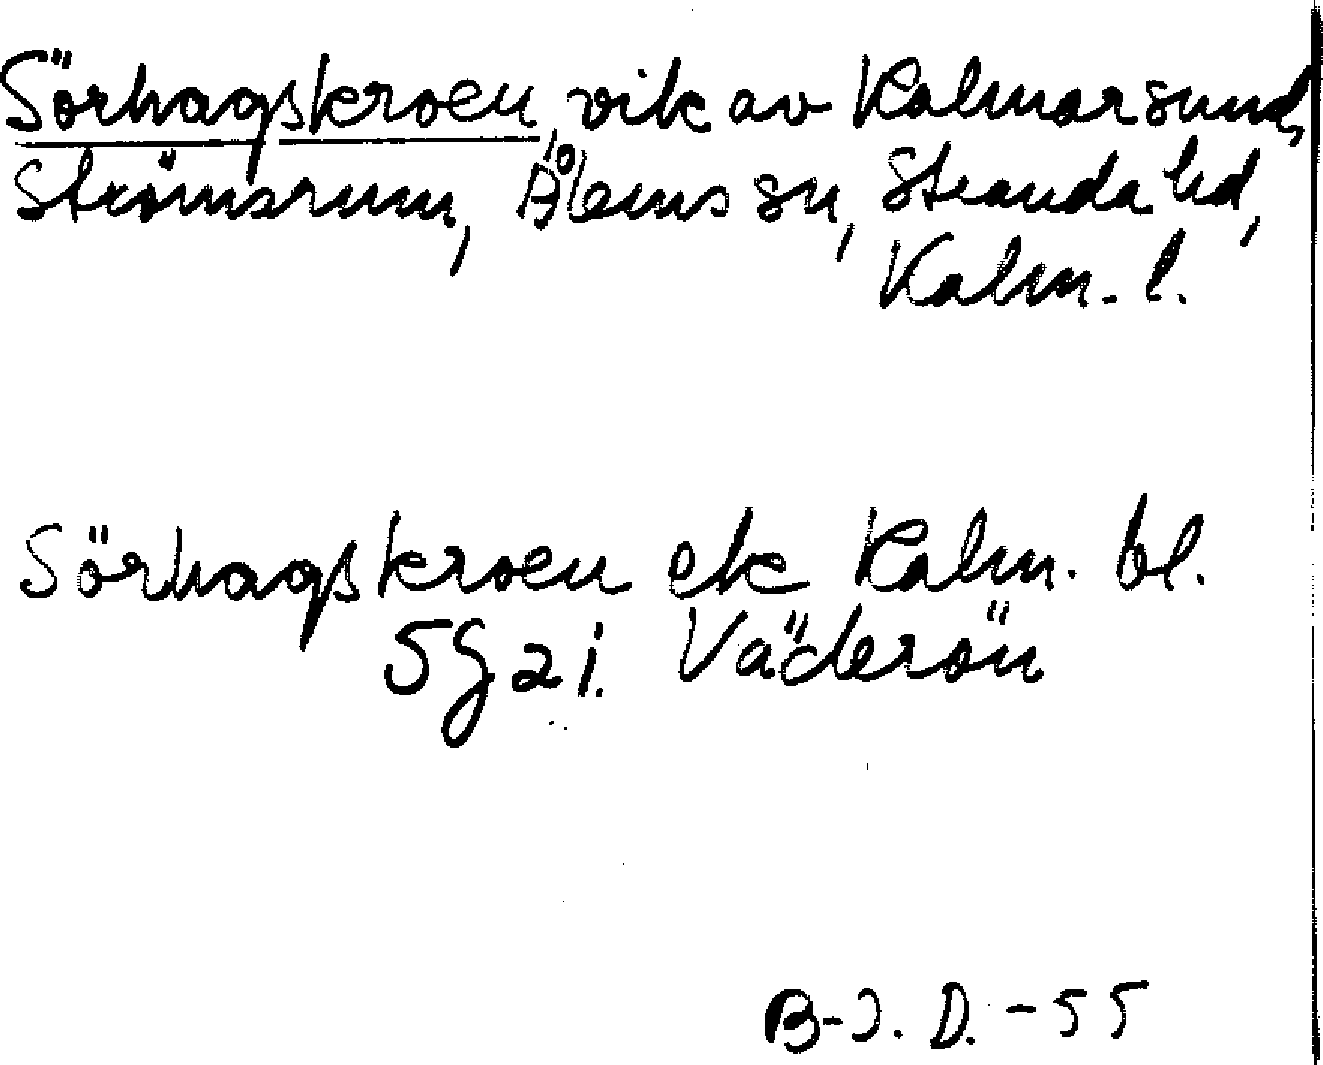 Sörhagskroen, vik av Kalmarsund,
Strömsrum, Ålems sn, Stranda hd,
Kalm. l.
Sörhagskroen ek Kalm. bl.
5G2i. Väderön
B-J. D. -55